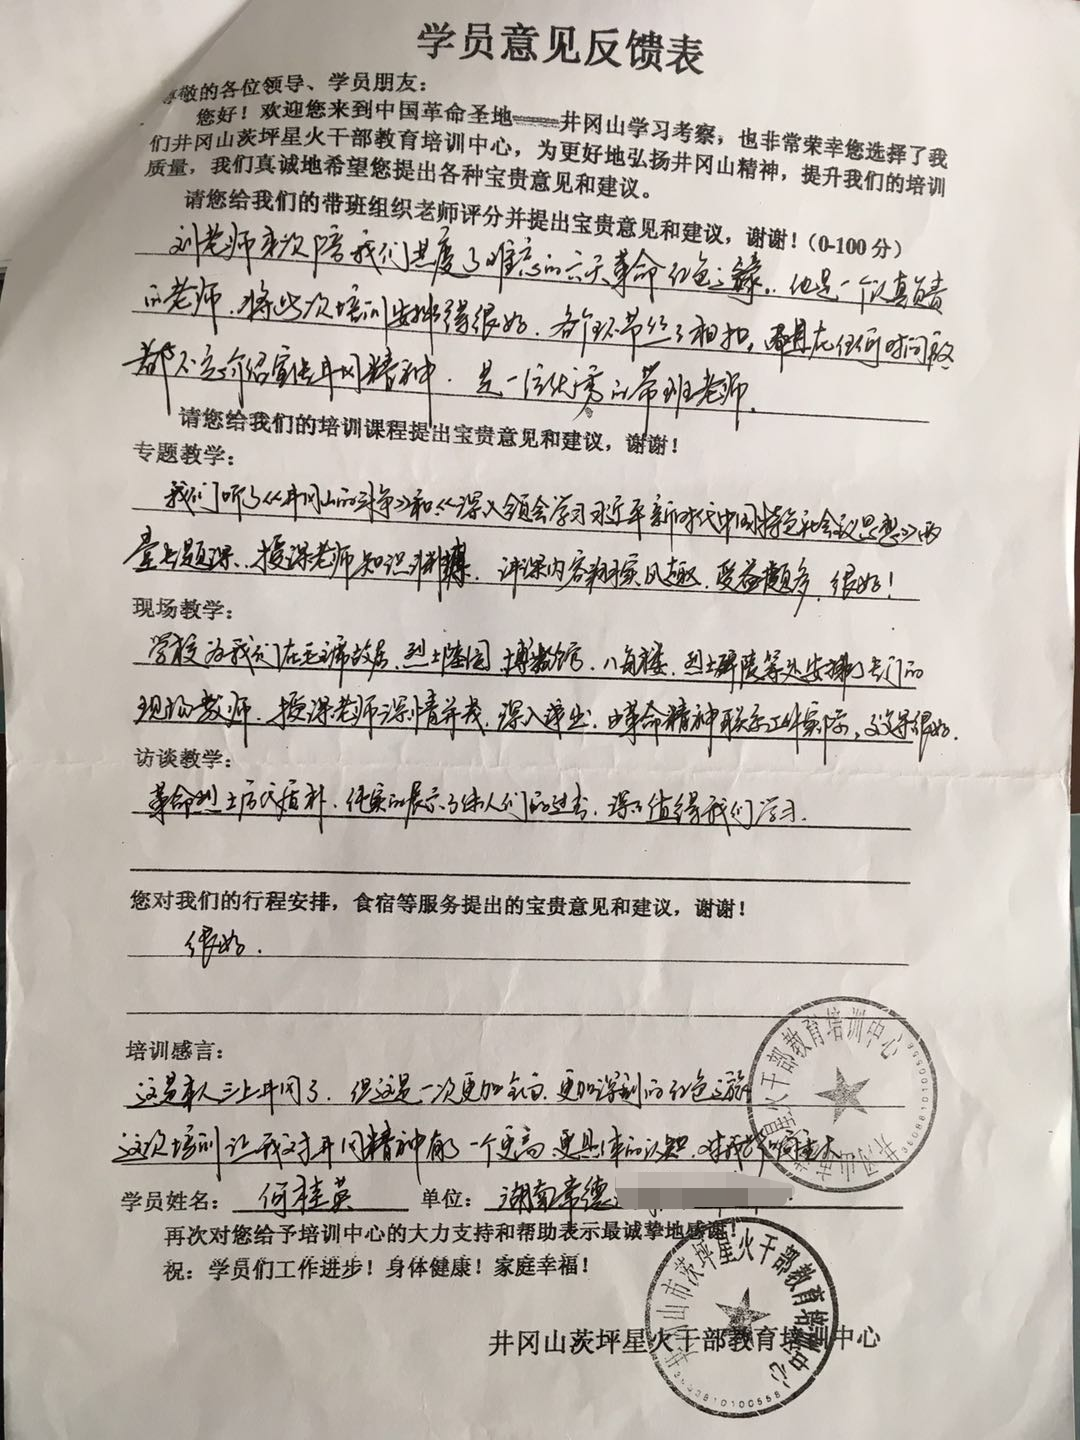 学员意见反馈表
尊敬的各位领导、学员朋友：
您好！欢迎您来到中国革命圣地——井冈山学习考察，也非常荣幸您选择了我
们井冈山茨坪星火干部教育培训中心，为更好地弘扬井冈山精神，提升我们的培训
质量，我们真诚地希望您提出各种宝贵意见和建议。
请您给我们的带班组织老师评分并提出宝贵意见和建议，谢谢！（0-100分）
刘老师本次陪我们共度了难忘的六天革命红色之旅。他是一个认真负责
的老师，将此次培训安排得很好，各个环节丝丝相扣，在任何时间段
都不忘介绍宣传井冈精神，是一位优秀的带班老师。
请您给我们的培训课程提出宝贵意见和建议，谢谢！
专题教学：
我们听了《井冈山的斗争》和《深入领会学习习近平新时代中国特色社会主义思想》两
堂专题课，授课老师知识渊博，讲课内容翔实、风趣，受益颇多，很好！
现场教学：
学校为我们在毛主席故居、烈士陵园、博物馆、八角楼、烈士陵等处安排了专门的
现场教师，授课老师深情并茂，深入浅出，由革命精神联系工作实际，效果很好。
访谈教学：
革命烈士后代，真实的展示了伟人们的过去，深深值得我们学习。
您对我们的行程安排，食宿等服务提出的宝贵意见和建议，谢谢！
很好。
培训感言：
这是本人三上井冈了，但这是一次更加全面、更加深刻的红色之旅
这次培训让我对井冈精神有了一个更高、更具体的认知，对我
学员姓名：何桂英 单位：湖南常德
再次对您给予培训中心的大力支持和帮助表示最诚挚地感谢！
祝：学员们工作进步！身体健康！家庭幸福！
井冈山茨坪星火干部教育培训中心
井冈山市茨坪星火干部教育培训中心
井冈山市茨坪星火干部教育培训中心